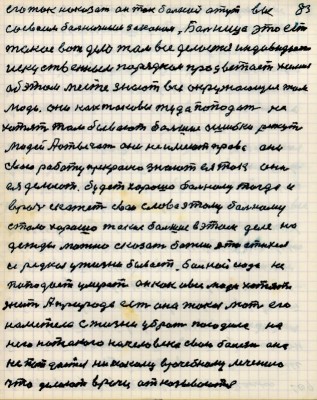 его ток показат он ток болной а тут все 83
своими болничими законами. Болница это ест
такое вот дело там все делоется индивидуално
искуственым порядком продвегает жизня
об этом месте знают все окружающие там
люди. они как токовы туда попадат не
хотят, там бывают болшие ошибки режут
людей А отвечат они не имеют право они
свою работу прекрасно знают ея ток они
ея делают. будет хорошо болному тогда и
врач скажет свое слова этому болному
стало хорошо такие болшие в этом деле но
дежды можно сказат божии это стихия
и редкая у жизни бывает. болной сюда не
попадает умират он как и все люди хотят
жит А природа ест она такая мат его
наметела с жизни убрат посадила на
него на такого на человека свою болезн она
не поддается никакому врачебному лечению
что делают врачи отказываются